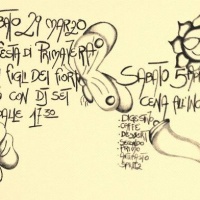 BATO 29 MARZO
FESTA DI PRIMAVERA
FIGLI DEI FIORI
CON DJ SET
DALLE 17.30
SABATO 5 APR
CENA ALL'INC
- DIGESTIVO
- CAFFE
- DESSERT
- SECONDO
- PRIMO
- ANTIPASTO
- SPRITZ